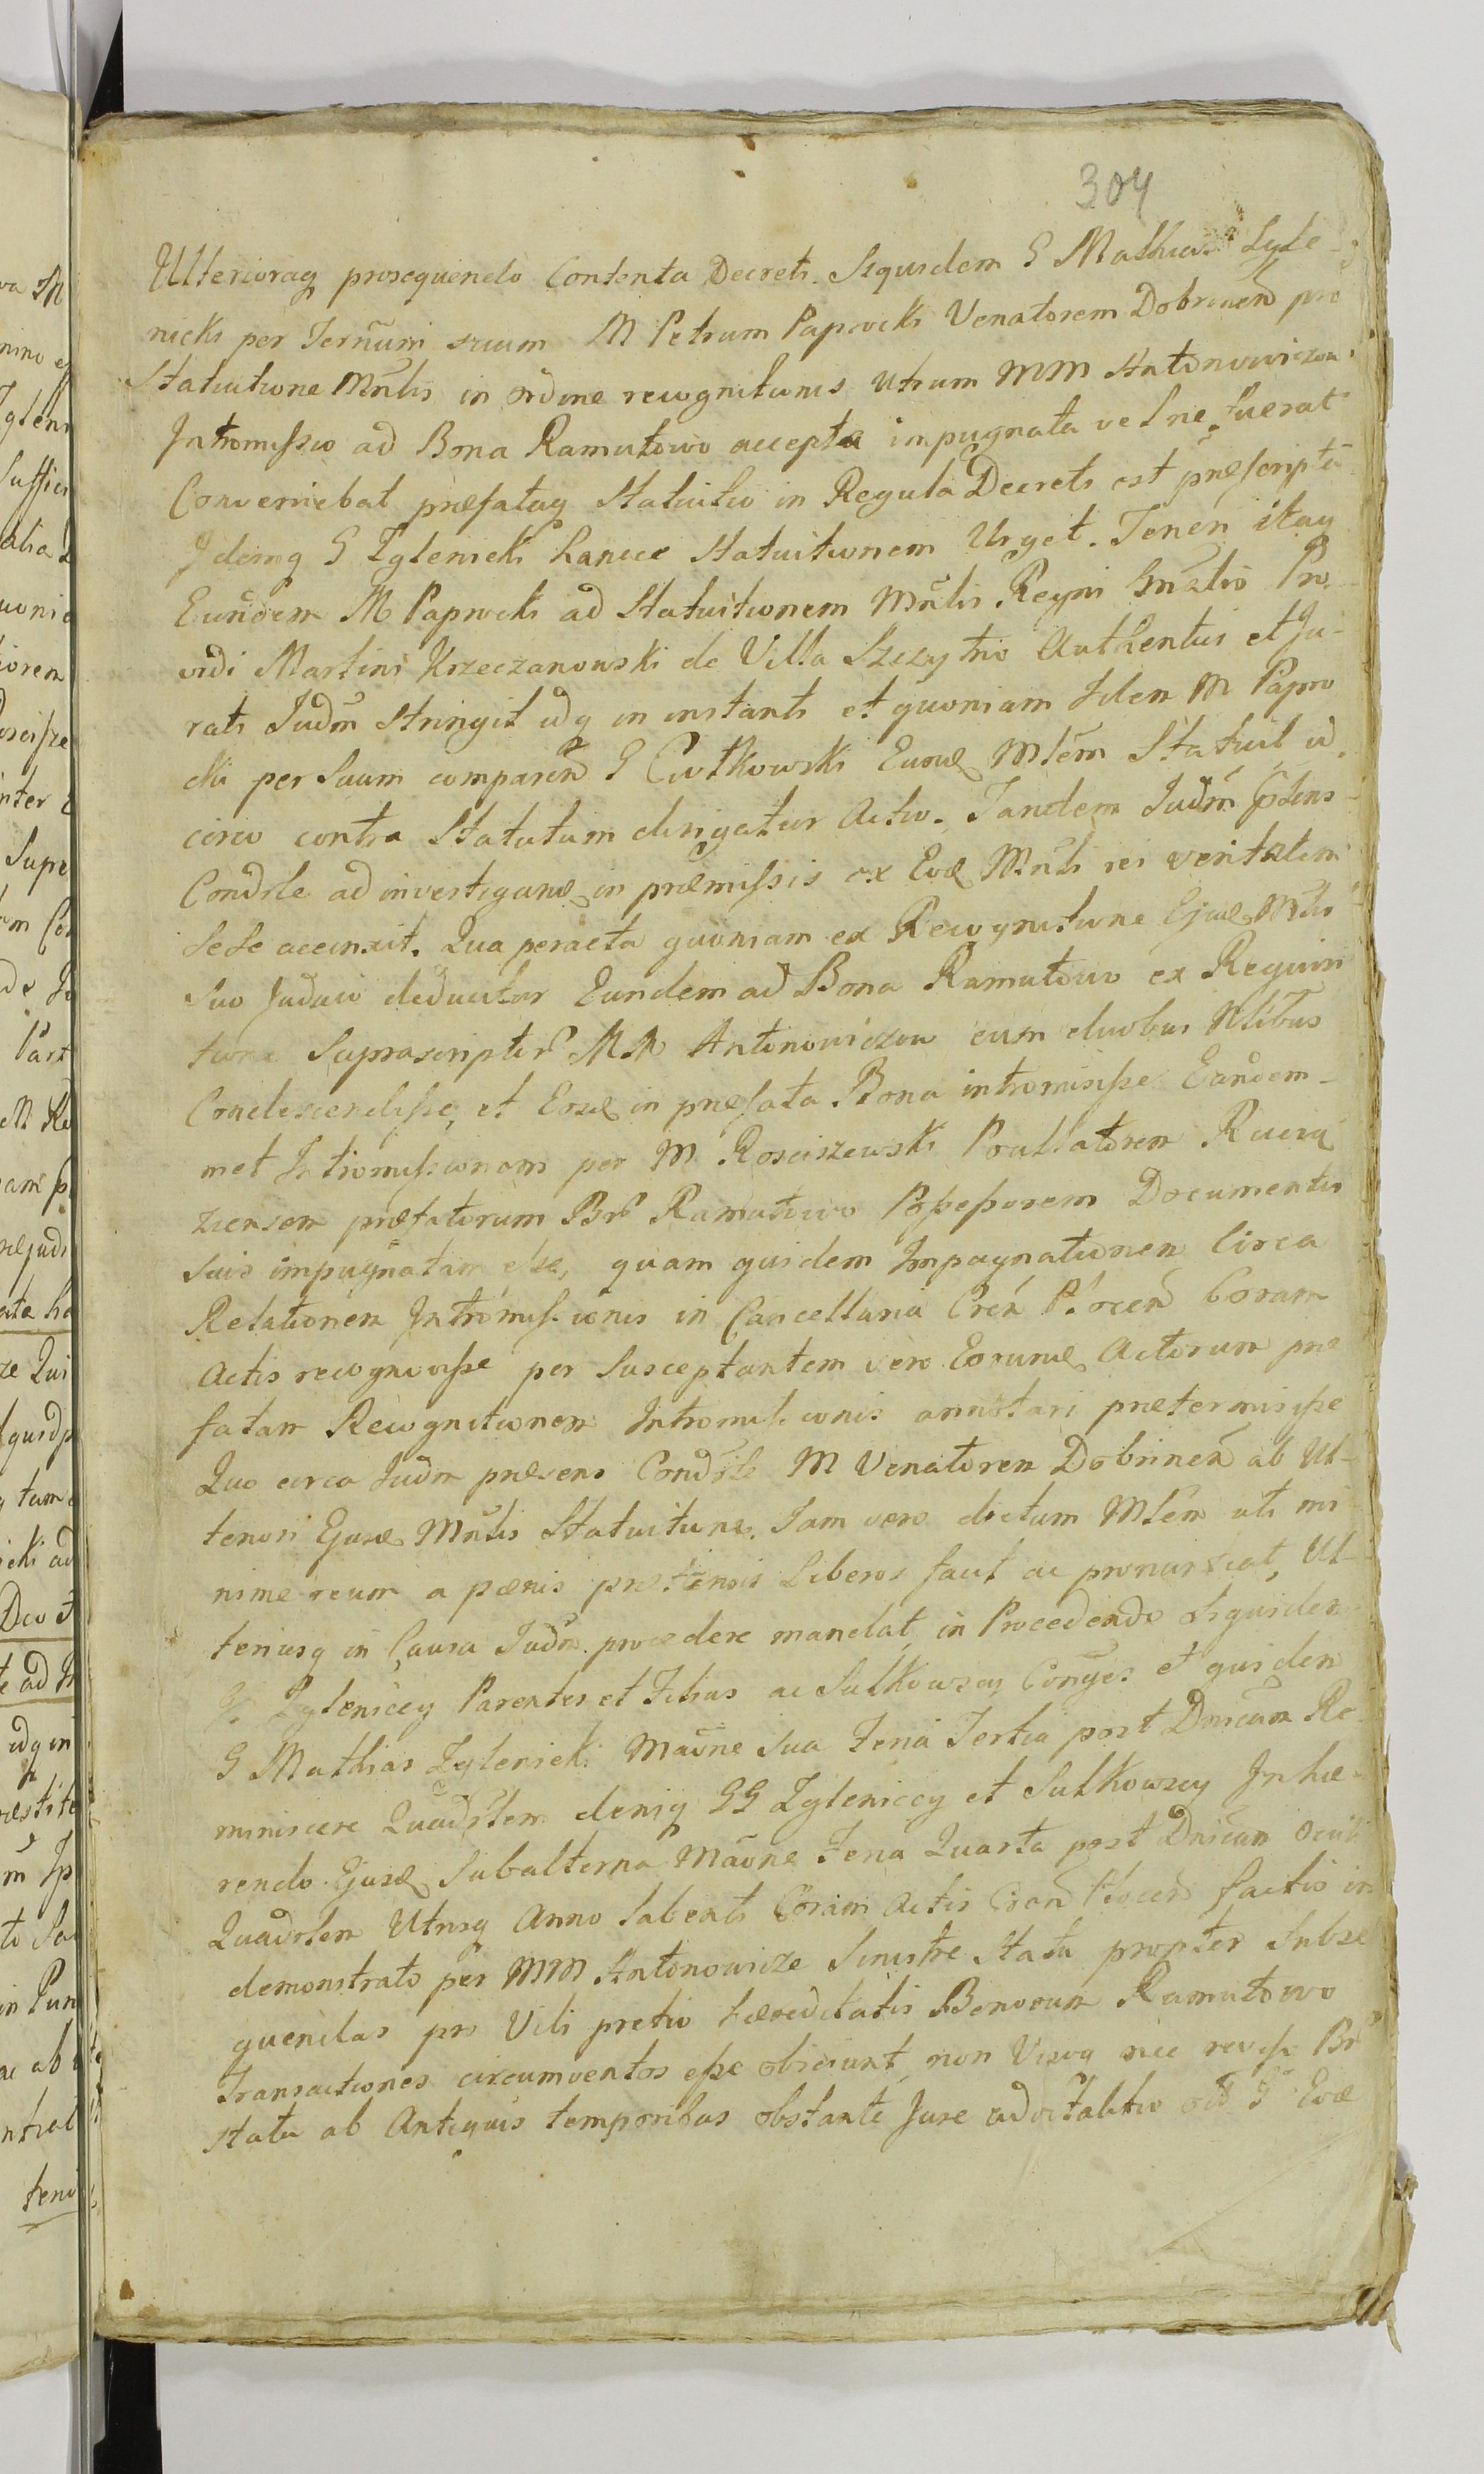 304
Ulterioraq prosequendo Contenta Decreti. Siquidem G Mathias Zgle-
nicki per Ternum suum M Petrum Paprocki Venatorem Dobrinen pro
Statuitione Mnlis in ordine recognitionis utrum MM Antonowiczow
Intromissio ad Bona Ramutowo accepta impugnata vel ne fuerat
Conveniebat præfataq Statuitio in Regula Decreti est præscripta
Idemq G Zglenicki hancce Statuitionem Urget. Teneri itaq
Eundem M Paprocki ad Statuitionem Mnlis Regni Gnalis Pro-
vidi Martini Krzeczanowski de Villa Szczytno Authentici et Ju-
rati Judm Stringit idq in instanti et quoniam Idem M Papro
cki per Suum comparen G Ciotkowski Eund Mlem Statuit id
circo contra Statutum dirigatur Actio. Tandem Judm Psens
Condsle ad investigand in præmissis ex Eod Mnli rei veritatem
Sese accinxit. Qua peracta quoniam ex Recognitione Ejusd Mnlis
Suo Judicio deducitur Eundem ad Bona Ramutowo ex Requisi
tione Suprascriptor MM Antonowiczow cum duobus Nlibus
Condescendisse, et Eosd in præfata Bona intromisisse Eandem-
met Intromissionem per M Rosciszewski Pocillatorem Racią
zensem præfatorum Br Ramutowo Possessorem Documentis
Suis impugnatam esse, quam quidem Impugnationem Circa
Relationem Intromissionis in Cancellaria Cren Plocen Coram
Actis recognovisse per Susceptantem vero Eorund Actorum præ
fatam Recognitionem Intromissionis annotari prætermisisse
Quo circa Judm præsens Condsle M Venatorem Dobrinen ab Ul-
teriori Ejusd Mnlis Statuitione. Jam vero dictum Mlem uti mi
nime reum a pœnis prætensis Liberos facit ac pronuntiat, Ul-
teriusq in Causa Judm procedere mandat, in Procedendo Siquidem
Zgleniccy Parentes et Filius ac Sutkowscy Conjges et quidem
G Mathias Zglenicki Maone Sua Feria Tertia post Dnicam Re
miniscere Quadslem deniq GG Zgleniccy et Sutkowscy Inhæ-
rendo Ejusd Subalterna Maone Feria Quarta post Dnicam Oculi
Quadslem Utrisq Anno labenti Coram Actis Cren Plocen factis in
demonstrato per MM Antonowicze Sinistre Statu propter Subse
quendas pro Vili pretio hæreditatis Bonorum Ramutowo
Transactiones circumventos esse obiciunt, non Visoq nec reviso Br
Statu ab Antiquis temporibus obstante Jure advitalitio Eod